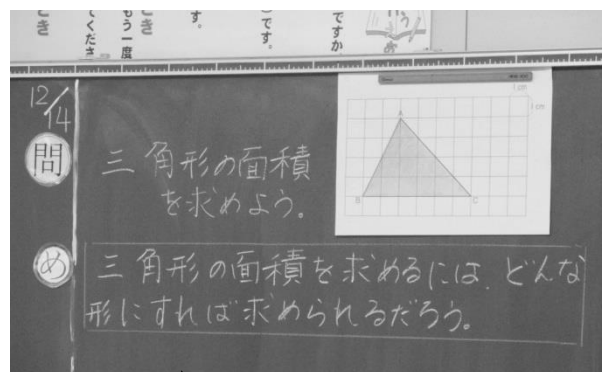 こき
てくださ
もう一度
こき
す。
です。
ですか
12/14
問
三角形の面積
を求めよう。
1cm
1cm
A
B
C
め
三角形の面積を求めるには、どんな
形にすれば求められるだろう。